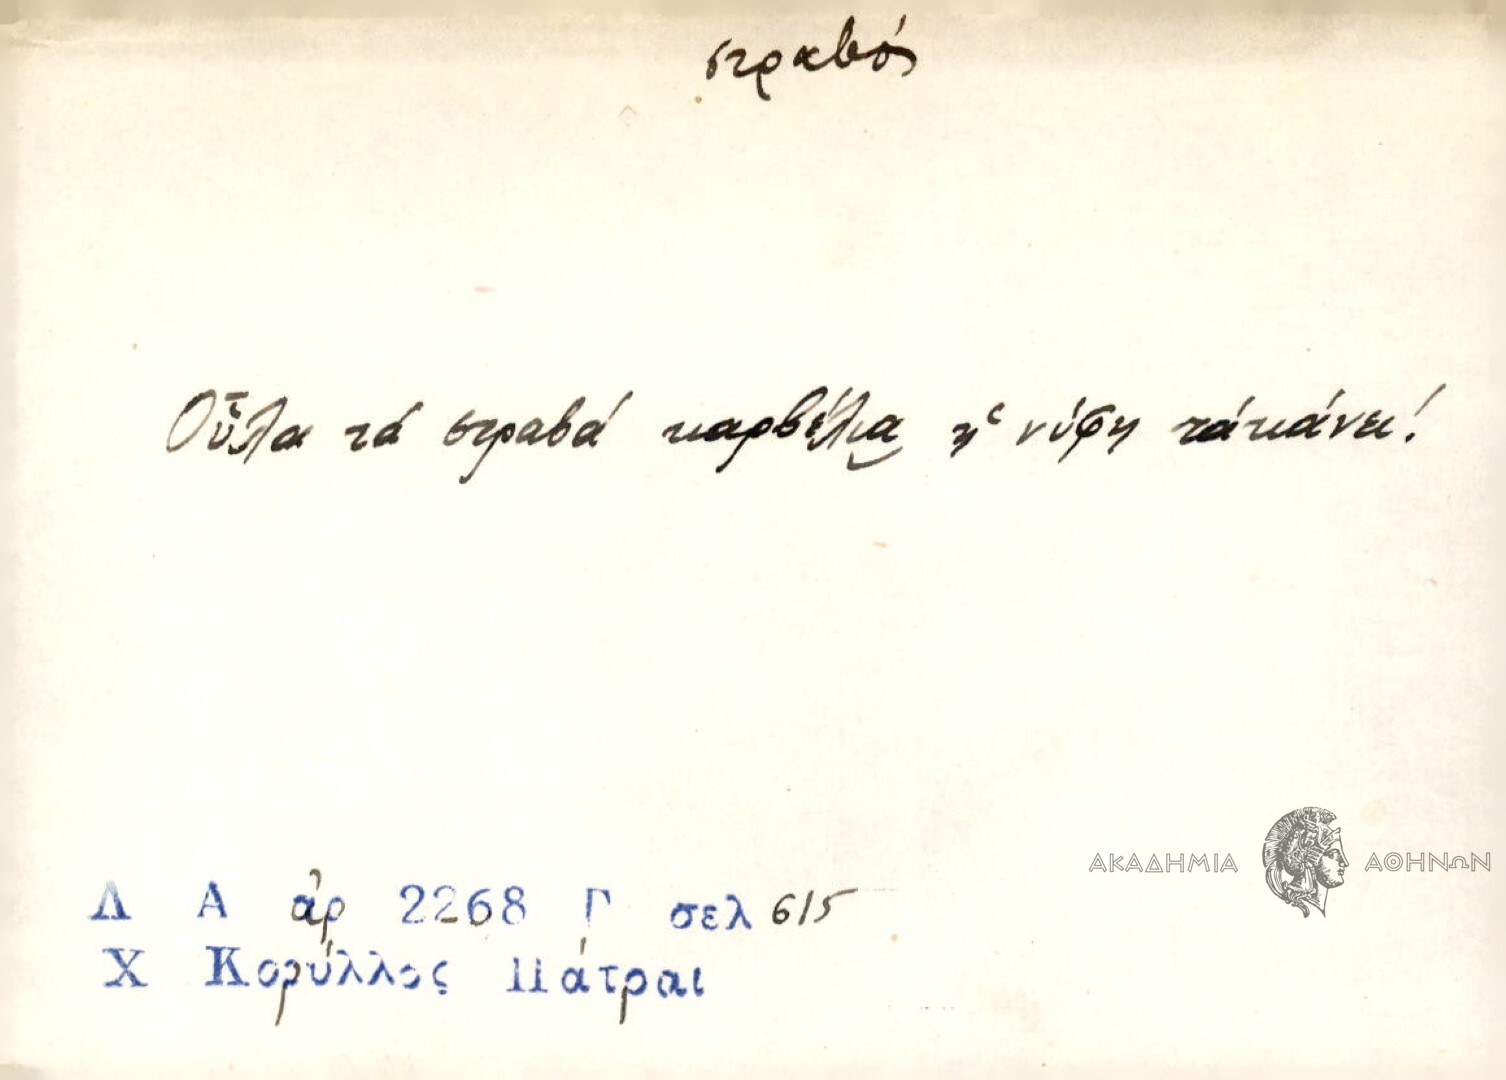 στραβός
Οὖλα τά στραβά καρβέλια ἡ νύφη τάκάνει!
Λ Α ἀρ 2268 Γ σελ 615
Χ Κορύλλος Πάτραι
ΑΚΑΔΗΜΙΑ ΑΘΗΝΩΝ